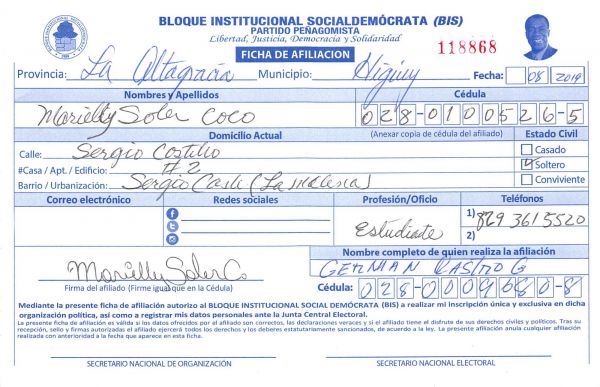 BLOQUE INSTITUCIONAL SOCIALDEMÓCRATA (BIS)
PARTIDO PEÑAGOMISTA
Libertad, Justicia, Democracia y Solidaridad
FICHA DE AFILIACION
118868
Provincia: La Altagracia Municipio: Higuey Fecha: 08 2019
Nombres y Apellidos Cédula
Marielly Soler Coco 028-0100526-5
Domicilio Actual (Anexar copia de cédula del afiliado) Estado Civil
Calle: Sergio Costillo Casado
#Casa / Apt. / Edificio: #2 Soltero
Barrio / Urbanización: Sergio (La Conviviente
Correo electrónico Redes sociales Profesión/Oficio Teléfonos
Estudiante 1) 829 361 5520
2)
Nombre completo de quien realiza la afiliación
Marielly Soler Co GERMAN CASTRO G
Firma del afiliado (Firme igual que en la Cédula) Cédula: 028-0009080-8
Mediante la presente ficha de afiliación autorizo al BLOQUE INSTITUCIONAL SOCIAL DEMÓCRATA (BIS) a realizar mi inscripción única y exclusiva en dicha
organización política, así como a registrar mis datos personales ante la Junta Central Electoral.
La presente ficha de afiliación es válida si los datos ofrecidos por el afiliado son correctos, las declaraciones veraces y si el afiliado tiene el disfrute de sus derechos civiles y políticos. Tras su
recepción, sello y firmas autorizadas el afiliado ejercerá todos los derechos y los deberes estatutariamente sancionados, de acuerdo a la ley. La presente afiliación anula cualquier afiliación
realizada con anterioridad a la fecha que aparece en esta ficha.
SECRETARIO NACIONAL DE ORGANIZACIÓN SECRETARIO NACIONAL ELECTORAL